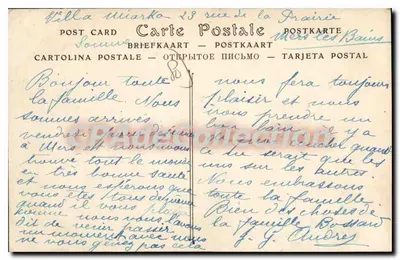 Villa Marka 23 rue de la Prairie
Mers les Bains
Somme
POST CARD
Carte Postale
POSTKARTE
BRIEFKAART — POSTKAART
CARTOLINA POSTALE — ОТКРЫТОЕ ПИСЬМО — TARJETA POSTAL
Bonjour toute
la famille Nous
sommes arrivés
vendredi
à Mers et nous avons
trouvé tout le monde
en très bonne santé
et nous espérons que
vous êtes tous de même
quand à vous
comme nous vous l'avons
dit de venir passer
un moment avec nous
ne vous gênez pas cela
nous fera toujours
plaisir et nous
bain il y a
coucher quand
à ça serait que les
uns sur les autres
Nous embrassons
toute la famille
Bien des choses de
la famille Bossard
J. J. Andres